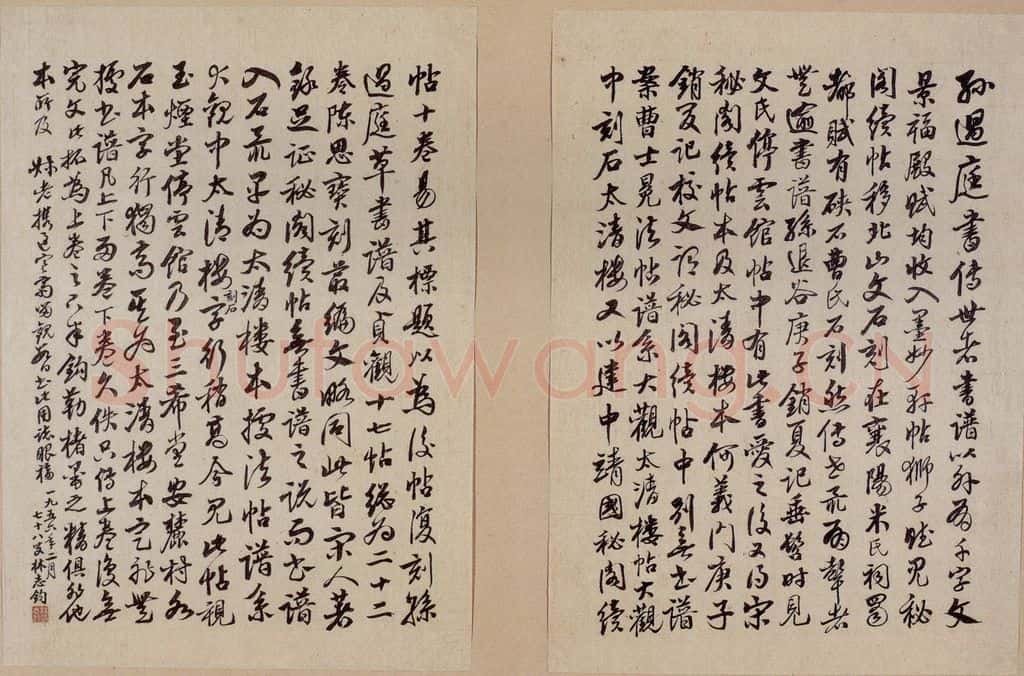 孙過庭書傳世者書譜以外為千字文
景福殿賦均收入墨妙軒帖獅子賦見秘
閣續帖移北山文石刻在襄陽米氏祠蜀
都賦有硤石曹氏石刻然傳世最為者
無逾書譜孫退谷庚子銷夏記垂髫時見
文氏停雲館帖中有此書愛之後又得宋
秘閣續帖本及太清樓本何義門庚子
銷夏記校文謂秘閣續帖中別無書譜
案曹士冕法帖譜系大觀太清樓帖大觀
中刻石太清樓又以建中靖國秘閣續
帖十卷易其標題以為後帖復刻孫
過庭草書譜及貞觀十七帖總為二十二
卷陳思寶刻叢編文略同此皆宋人著
錄足證秘閣續帖無書譜之說而書譜
入石最早為太清樓本按法帖譜系
大觀中太清樓刻石字行稍高今見此帖視
玉煙堂停雲館乃至三希堂安麓村各
石本字行獨高其為太清樓本定非無
據書譜凡上下兩卷下卷久佚只傳上卷復無
完文此拓為上卷之下半鈎勒椎墨之精俱非他
本所及 老携至齋留觀數日書此用誌眼福 一九五六年二月
七十八叟林志鈞
Shufawang.cn